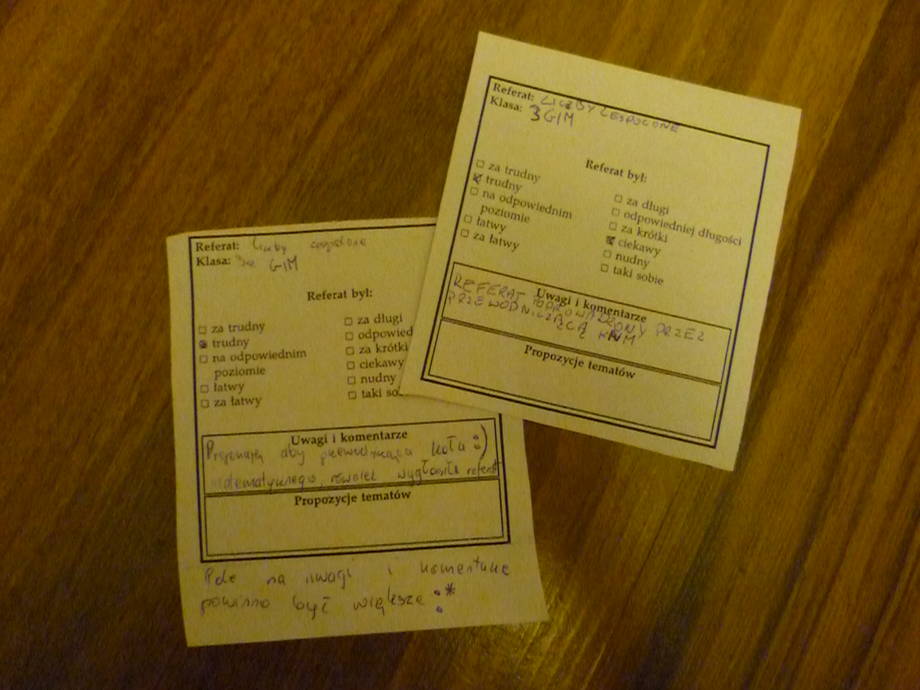 Referat: LICZBY ZESPOLONE
Klasa: 3 GIM
Referat był:
☐ za trudny
☒ trudny
☐ na odpowiednim
poziomie
☐ łatwy
☐ za łatwy
☐ za długi
☐ odpowiedniej długości
☐ za krótki
☒ ciekawy
☐ nudny
☐ taki sobie
Uwagi i komentarze
REFERAT POPROWADZONY PRZEZ
PRZEWODNICZĄCĄ KNM
Propozycje tematów
Referat: liczby zespolone
Klasa: 3 GIM
Referat był:
☐ za trudny
☒ trudny
☐ na odpowiednim
poziomie
☐ łatwy
☐ za łatwy
☐ za długi
☐ odpowied
☐ za krótki
☐ ciekawy
☐ nudny
☐ taki so
Uwagi i komentarze
Proponuję aby przewodnicząca koła :)
matematycznego, również wygłosiła referat
Propozycje tematów
Pole na uwagi i komentarze
powinno być większe :*